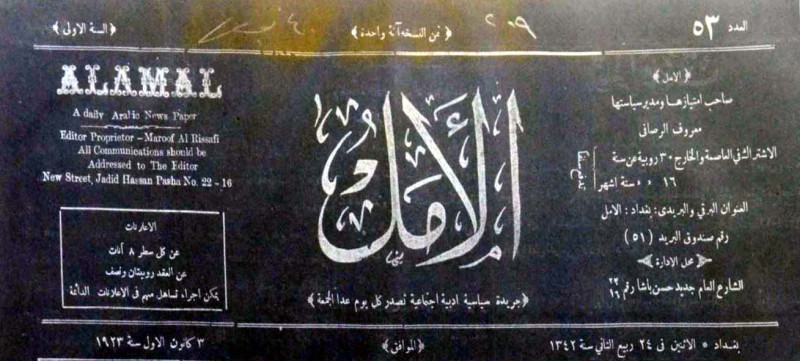 العدد ٥٣
٢٠٩
﴿ثمن النسخه آنة واحدة﴾
﴿السنة الاولى﴾
﴿الامل﴾
صاحب امتيازها ومدير سياستها
معروف الرصافي
الاشتراك في العاصمة والخارج ٣٠ روبية عن سنة
١٦ » » ستة اشهر
العنوان البرقي والبريدي: بغداد: الامل
رقم صندوق البريد (٥١)
﴿محل الادارة﴾
الشارع العام جديد حسن باشا رقم ٢٢ ١٦
الأمل
﴿جريدة سياسية ادبية اجتماعية تصدر كل يوم عدا الجمعة﴾
ALAMAL
A daily Arabic News Paper
Editor Proprietor – Maroof Al Rissafi
All Communications should be
Addressed to The Editor
New Street, Jadid Hassan Pasha No. 22 - 16
الاعلانات
عن كل سطر ٨ آنات
عن العقد روبيتان ونصف
يمكن اجراء تساهل مهم في الاعلانات الدائمة
بغداد * الاثنين في ٢٤ ربيع الثاني سنة ١٣٤٢
﴿الموافق﴾
٣ كانون الاول سنة ١٩٢٣